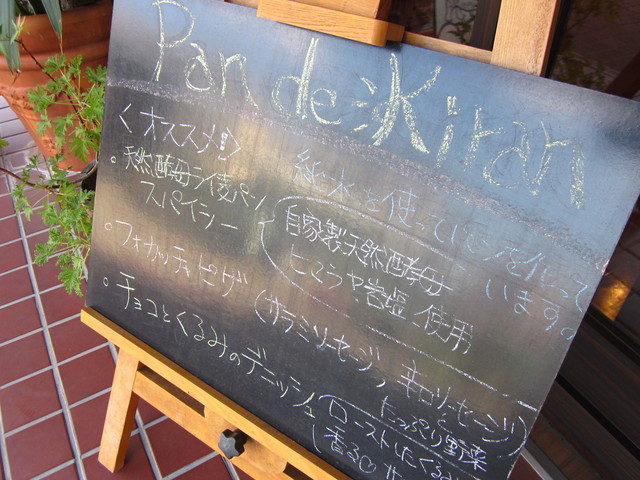 Pan de Kiran
〈オススメ!〉
純水を使ってパンを作って
います。
・天然酵母ライ麦パン
スパイシー
自家製天然酵母
ヒマラヤ岩塩 使用
・フォカッチャピザ (サラミソーセージ, 辛口ソーセージ)
と
たっぷり野菜
・チョコとくるみのデニッシュ
ローストしたくるみ
香る